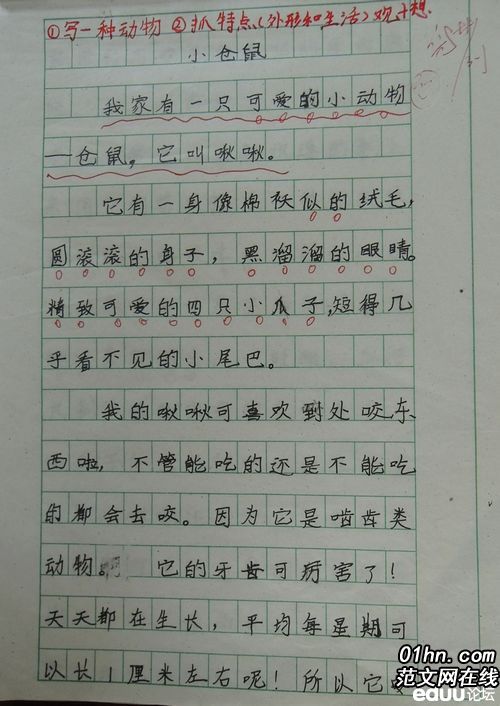 ①写一种动物 ②抓特点(外形和生活)观+想
小仓鼠
我家有一只可爱的小动物
—仓鼠,它叫啾啾。
它有一身像棉袄似的绒毛,
圆滚滚的身子,黑溜溜的眼睛。
精致可爱的四只小爪子,短得几
乎看不见的小尾巴。
我的啾啾可喜欢到处咬东
西啦,不管能吃的还是不能吃
的都会去咬。因为它是啮齿类
动物。它的牙齿可厉害了!
天天都在生长,平均每星期可
以长1厘米左右呢!所以它
01hn.com
范文网在线
eduu论坛